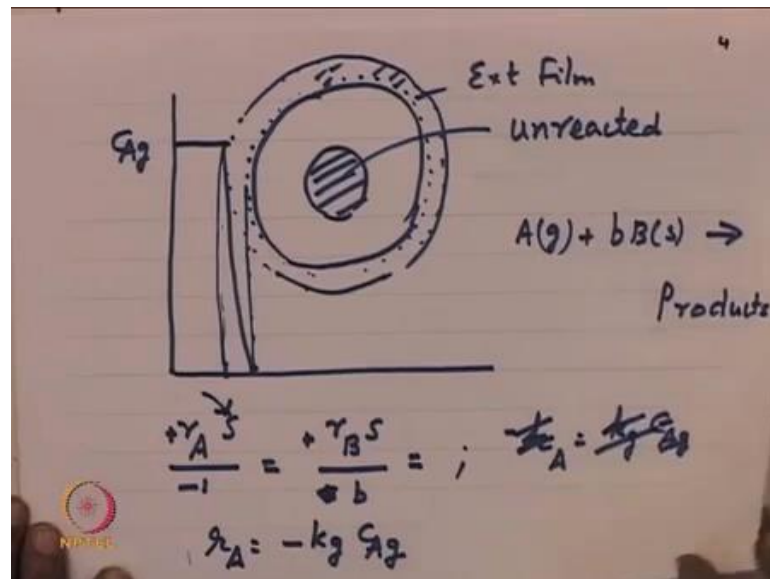 4
Ext Film
unreacted
CAg
A(g) + bB(s) →
Products
+rA S / -1 = + rB S / b = ;
rA = -kg CAg
NPTEL